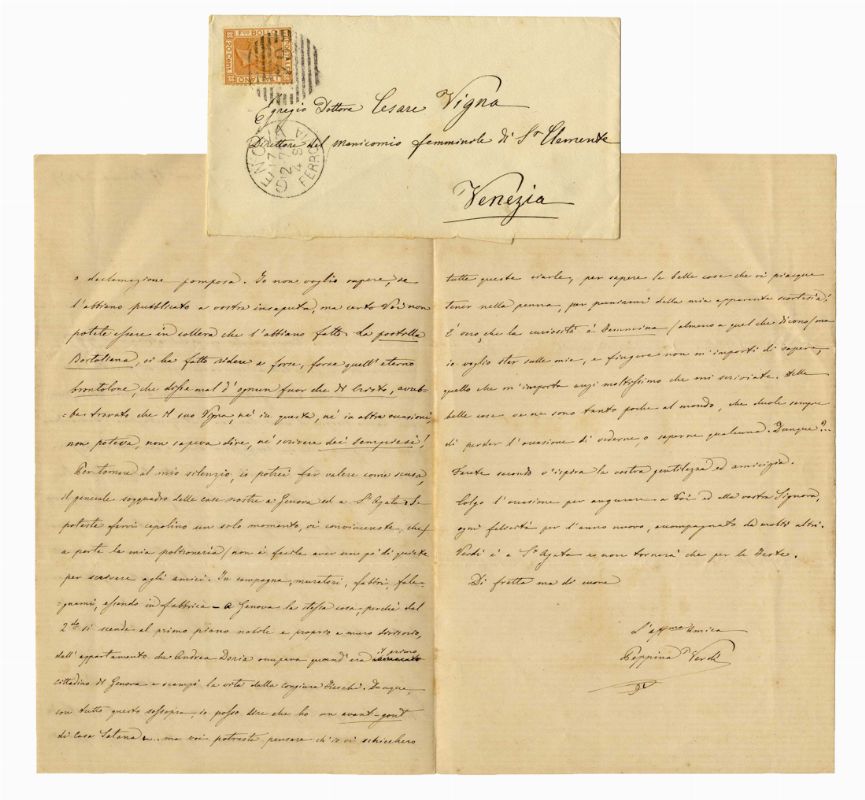 Egregio Dottore Cesare Vigna
Direttore del manicomio femminile di Sn Clemente
Venezia
GENOVA
FERROVIA
o declamazione pomposa. Io non voglio sapere, se
l'abbiano pubblicato a vostra insaputa, ma certo Voi non
potete essere in collera che l'abbiano fatto. La
Bortoliana, ci ha fatto ridere e forse, forse quell'eterno
brontolone, che disse mal d'ognun fuor che di Cristo, avreb-
be trovato che il suo Vigna, nè in questa, nè in altra occasione,
non poteva, non sapeva dire, nè scrivere dei
Per tornare al mio silenzio, io potrei far valere come scusa,
il generale soqquadro delle case nostre a Genova ed a St Agata. Se
poteste farvi capolino un solo momento, vi convincereste, che
a parte la mia poltroneria, non è facile aver un pò di quiete
per scrivere agli amici. In campagna, muratori, fabbri, fale-
gnami, essendo in fabbrica - a Genova la stessa cosa, perchè dal
2do si scende al primo piano nobile e proprio a muro divisorio,
dell'appartamento che Andrea Doria occupava quand'era il primo
cittadino di Genova e scampò la vita dalla congiura Fieschi. Dunque,
con tutto questo sossopra, io posso dire che ho un avant-gout
di casa Satana... ma voi potreste pensare ch'io vi schicchero
tutte queste ciarle, per sapere le belle cose che vi piacque
tener nella penna, per punirmi della mia apparente scortesia!
È vero, che la curiosità è femminina (almeno a quel che dicono) ma
io voglio star sulle mie, e fingere non m'importi di sapere,
quello che m'importa anzi moltissimo che mi scriviate. Delle
belle cose ve ne sono tanto poche al mondo, che duole sempre
di perder l'occasione di vederne, o saperne qualcuna. Dunque?...
Farete secondo v'ispira la vostra gentilezza ed amicizia.
Colgo l'occasione per augurare a Voi ed alla vostra Signora,
ogni felicità per l'anno nuovo, accompagnato da molti altri.
Verdi è a St Agata e non tornerà che per le Feste.
Di fretta ma di cuore
L'affma Amica
Peppina Verdi